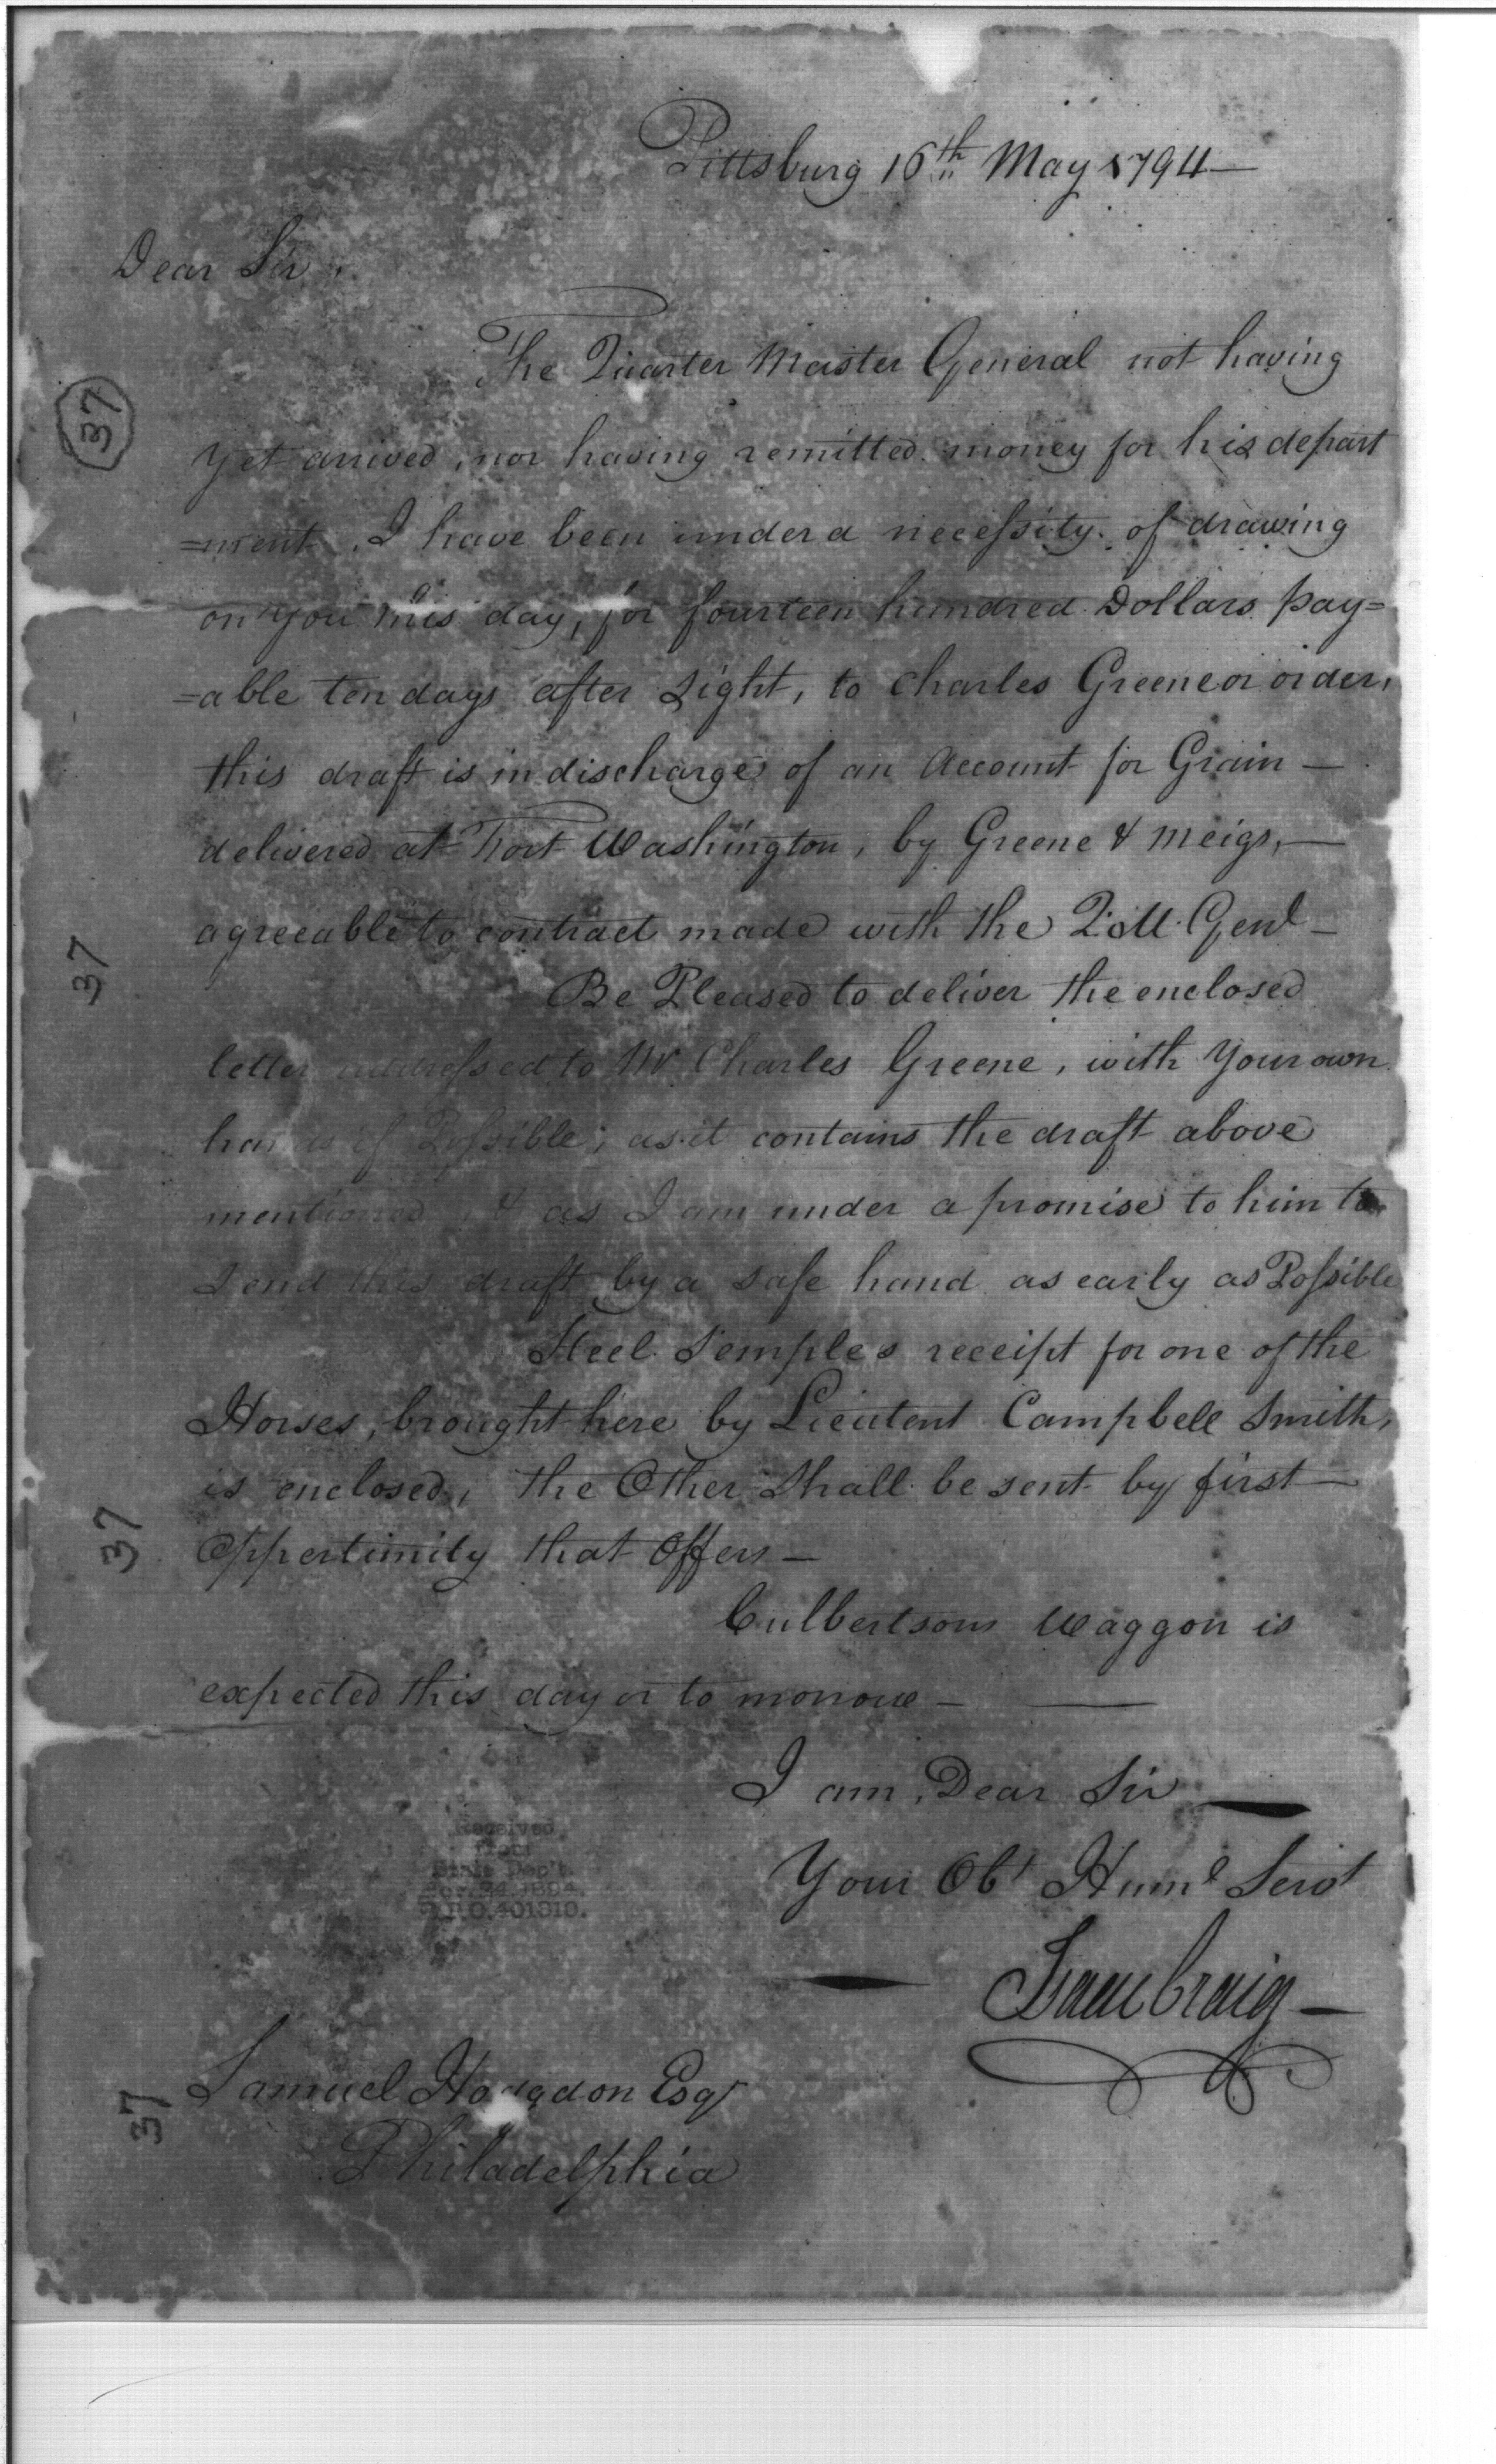 Pittsburg 16th May 1794—
Dear Sir,
The Quarter Master General not having
yet arrived, nor having remitted money for his depart
=ment, I have been under a necessity of drawing
on You this day, for fourteen hundred Dollars pay=
=able ten days after Sight, to Charles Greene or order,
this draft is in discharge of an Account for Grain—
delivered at Fort Washington, by Greene & Meigs,—
agreeable to contract made with the Q.M. Genl—
Be Pleased to deliver the enclosed
letter addressed to Mr. Charles Greene, with Your own
hands if Possible; as it contains the draft above
mentioned, & as I am under a promise to him to
Send this draft by a safe hand as early as Possible
Steel Semples receipt for one of the
Horses, brought here by Lieutent Campbell Smith,
is enclosed, the Other Shall be sent by first—
Oppertunity that Offers—
Culbertsons Waggon is
expected this day or to morrow—
I am, Dear Sir
Your Obt Humle Servt
Isaac Craig—
Samuel Hodgdon Esqr
Philadelphia
37
37
37
37
Received
from
State Dep't.
24, 1894.
R.P.O. 401310.